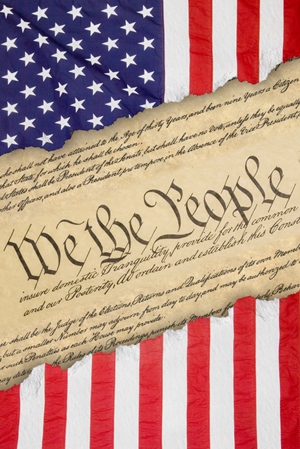 who shall not have attained to the Age of thirty Years, and been nine Years a Citizen
that State for which he shall be chosen.
States shall be President of the Senate, but shall have no Vote, unless they be equally
other Officers, and also a President pro tempore, in the Absence of the Vice President,
We the People
insure domestic Tranquility, provide for the common
and our Posterity, do ordain and establish this Const
shall be the Judge of the Elections, Returns and Qualifications of its own Mem
but a smaller Number may adjourn from day to day, and may be authorized to
such Penalties as each House may provide.
may determine the Rules of its Proceedings